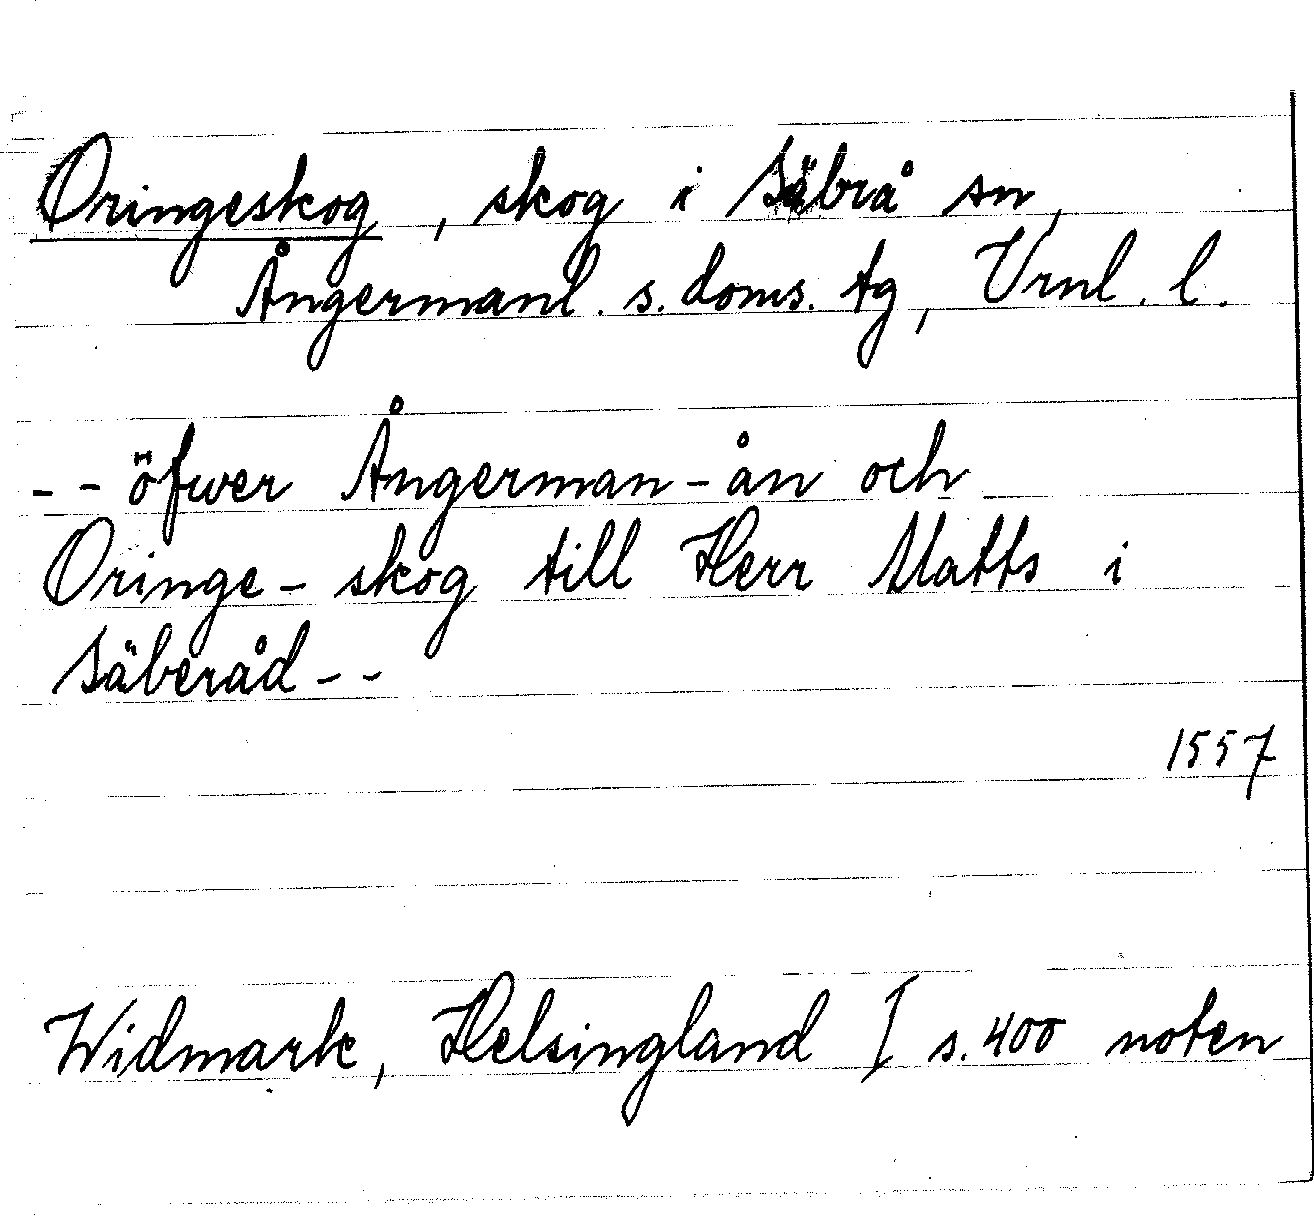 Oringeskog, skog i Säbrå sn,
Ångermanl. s. doms. tg, Vrnl. l.
-- öfwer Ångerman-ån och
Oringe-skog till Herr Matts i
Säberåd--
1557
Widmark, Helsingland I s. 400 noten